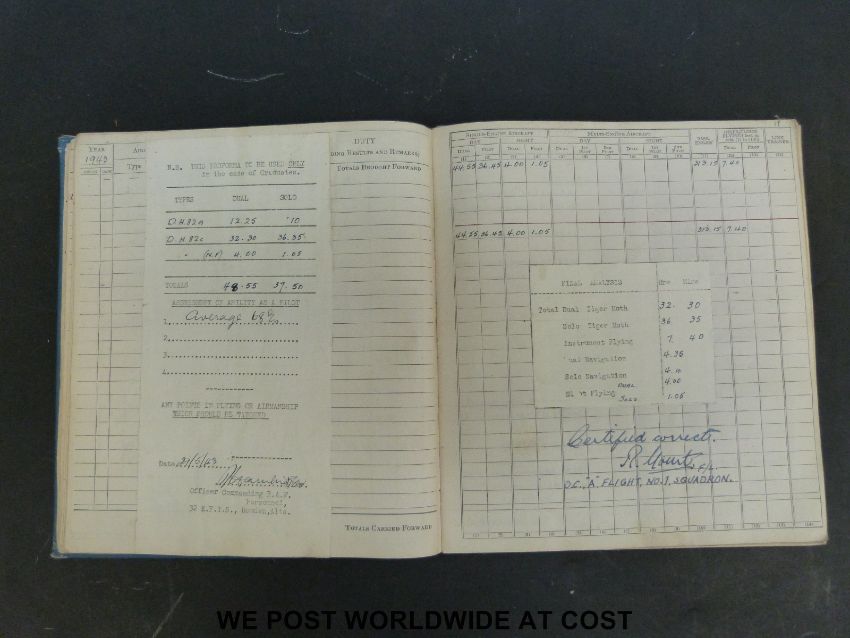 YEAR
1943
TYPE
N.B. THIS PROFORMA TO BE USED ONLY
in the case of Graduates.
TYPES DUAL SOLO
D.H.82a 12.25 '10
D.H.82c 32.30 36.35
" (N.F) 4.00 1.05
TOTALS 48.55 37.50
ASSESSMENT OF ABILITY AS A PILOT
1. Average 68%
2.
3.
4.
ANY POINTS IN FLYING OR AIRMANSHIP
WHICH SHOULD BE WATCHED
Date
Officer Commanding R.A.F.
Personnel,
32 E.F.T.S., Bowden, Alta.
DUTY
RESULTS AND REMARKS)
TOTALS BROUGHT FORWARD
TOTALS CARRIED FORWARD
SINGLE-ENGINE AIRCRAFT MULTI-ENGINE AIRCRAFT
DAY NIGHT DAY NIGHT
DUAL PILOT DUAL PILOT DUAL 1ST PILOT 2ND PILOT DUAL 1ST PILOT 2ND PILOT DUAL PILOT
44.55 36.45 4.00 1.05 213.15 7.40
44.55 36.45 4.00 1.05 213.15 7.40
FINAL ANALYSIS Hrs Mins
Total Dual Tiger Moth 32. 30
Solo Tiger Moth 36 35
Instrument Flying 7. 40
Dual Navigation 4.35
Solo Navigation 4.10
DUAL 4.00
Night Flying SOLO 1.05
Certified correct.
F/L.
O.C. "A" FLIGHT, NO.1. SQUADRON.
WE POST WORLDWIDE AT COST